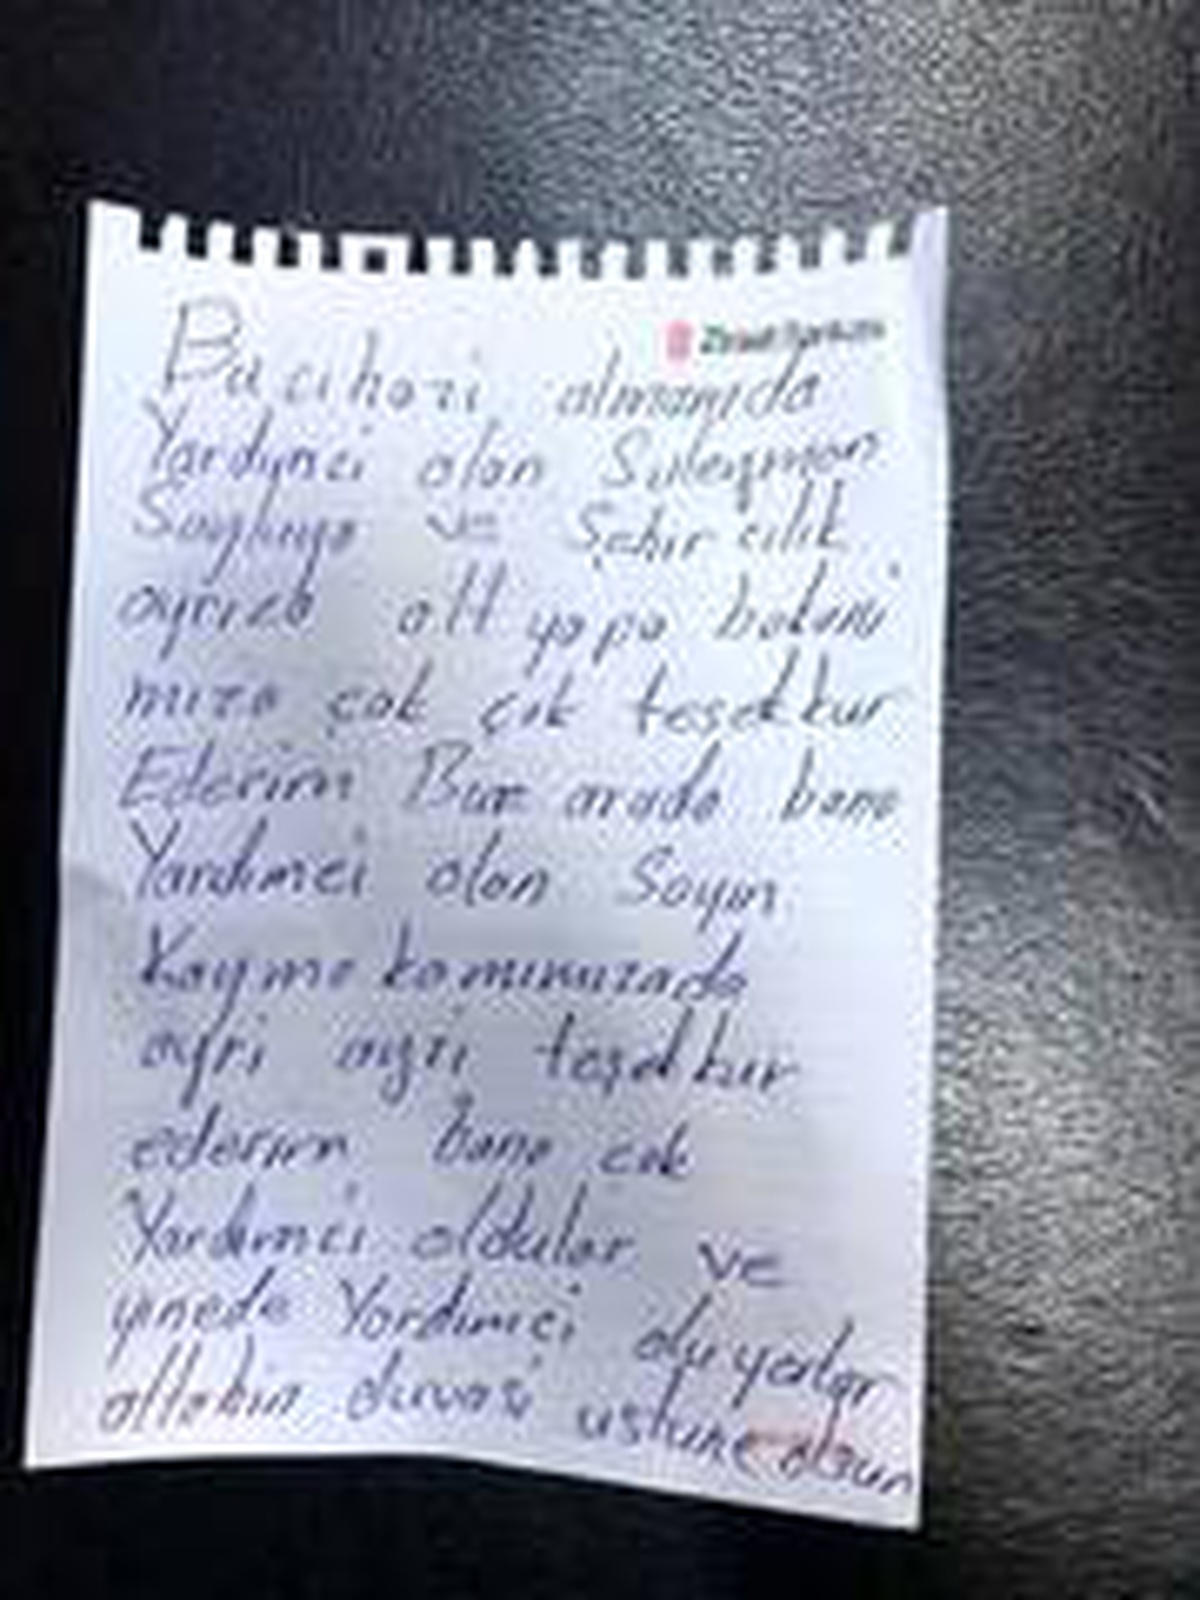 Ziraat Bankası
Bu cihazi almamda
Yardımci olan Süleyman
Soyluya ve Şehir cilik
ayrıca alt yapa bakani
mıza çok çok teşekkur
Ederim Bu arada bana
Yardımci olan Sayın
Kayma kamımızada
ayri ayri teşekkur
ederim bana çok
Yardımci oldular ve
yinede Yardımci oluyorlar
allahın duvasi ustune olsun